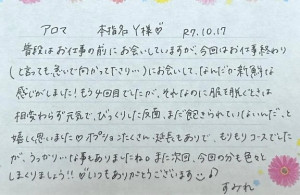 アロマ 本指名Y様♡ R7.10.17
普段はお仕事の前にお会いしていますが、今回はお仕事終わり
(と言っても、急いで向かって下さり…)にお会いして、なんだか新鮮な
感じがしました!もう4回目でしたが、それなのに服を脱ぐときは
相変わらず元気で、びっくりした反面、まだ飽きられていないんだ、と
嬉しく思いました♡オプションたくさん、延長もありで、もりもりコースでした
が、うっかり〜な事もありましたね。また次回、今回の分も色々と
しまくりましょう!!♡いつもありがとうございます😊♪
すみれ